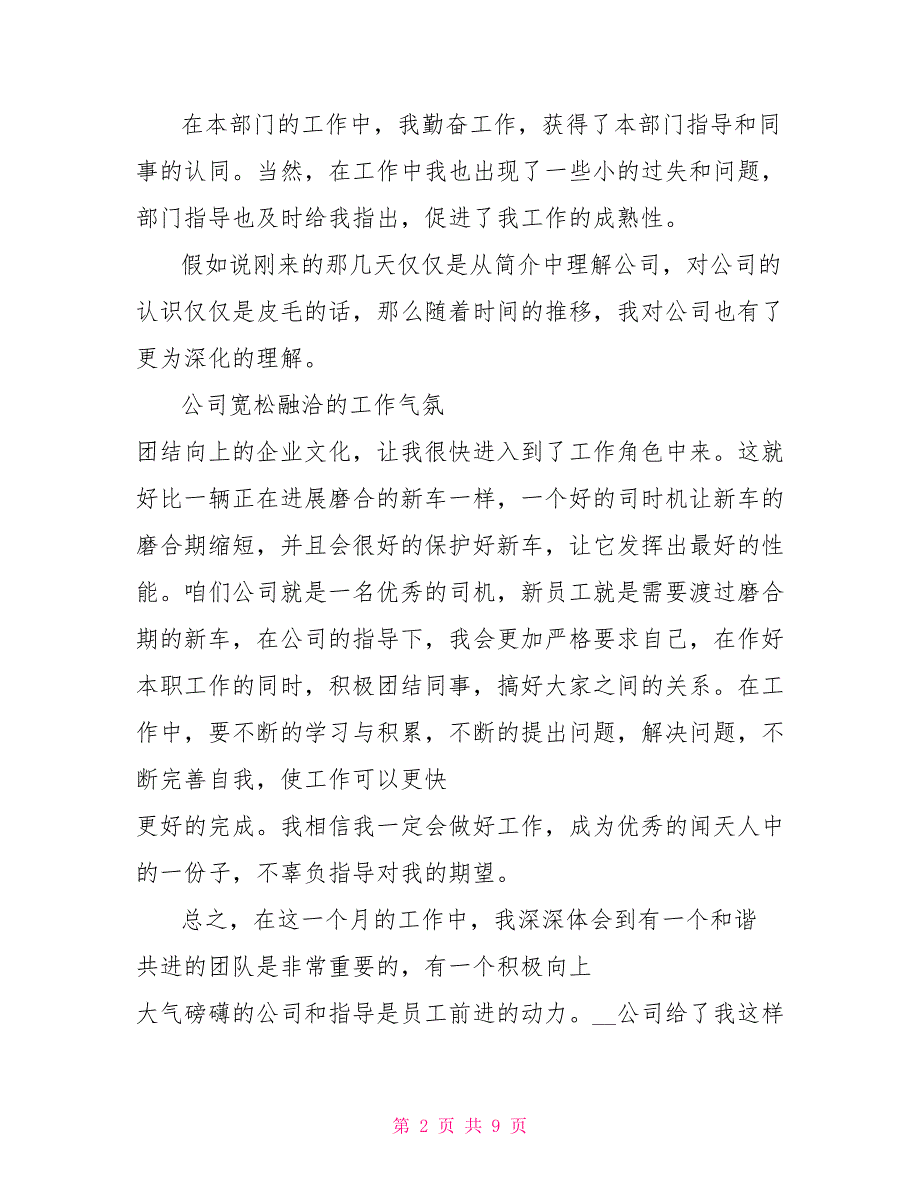 在本部门的工作中，我勤奋工作，获得了本部门指导和同
事的认同。当然，在工作中我也出现了一些小的过失和问题，
部门指导也及时给我指出，促进了我工作的成熟性。
假如说刚来的那几天仅仅是从简介中理解公司，对公司的
认识仅仅是皮毛的话，那么随着时间的推移，我对公司也有了
更为深化的理解。
公司宽松融洽的工作气氛
团结向上的企业文化，让我很快进入到了工作角色中来。这就
好比一辆正在进展磨合的新车一样，一个好的司时机让新车的
磨合期缩短，并且会很好的保护好新车，让它发挥出最好的性
能。咱们公司就是一名优秀的司机，新员工就是需要渡过磨合
期的新车，在公司的指导下，我会更加严格要求自己，在作好
本职工作的同时，积极团结同事，搞好大家之间的关系。在工
作中，要不断的学习与积累，不断的提出问题，解决问题，不
断完善自我，使工作可以更快
更好的完成。我相信我一定会做好工作，成为优秀的闻天人中
的一份子，不辜负指导对我的期望。
总之，在这一个月的工作中，我深深体会到有一个和谐
共进的团队是非常重要的，有一个积极向上
大气磅礴的公司和指导是员工前进的动力。__公司给了我这样
第 2 页 共 9 页